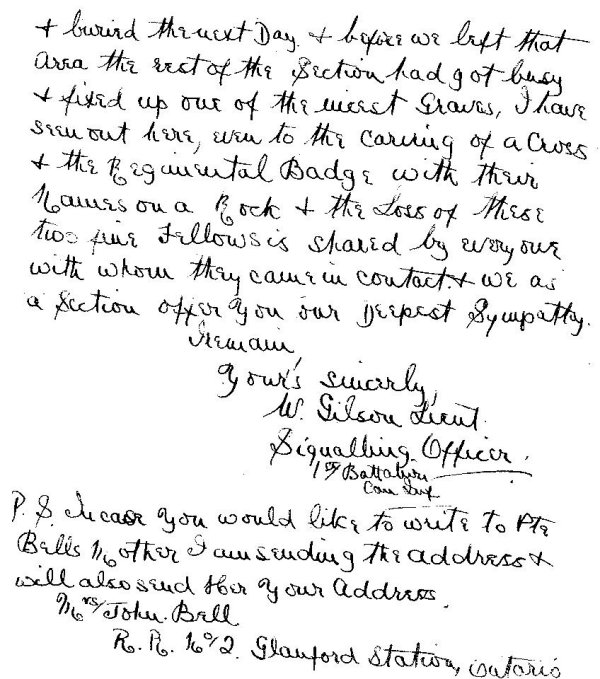 & buried the next Day. & before we left that
area the rest of the Section had got busy
& fixed up one of the nicest Graves, I have
seen out here, even to the Carving of a Cross
& the Regimental Badge with their
Names on a Rock & the Loss of these
two fine Fellows is shared by everyone
with whom they came in contact & we as
a Section offer you our Deepest Sympathy.
I remain,
Your's sincerly,
W. Gilson Lieut.
Signalling Officer.
1st Battalion
Can Inf
P.S. Incase you would like to write to Pte
Bells Mother I am sending the address &
will also send Her your Address.
Mrs/ John. Bell
R. R. No 2. Glanford Station, Ontario